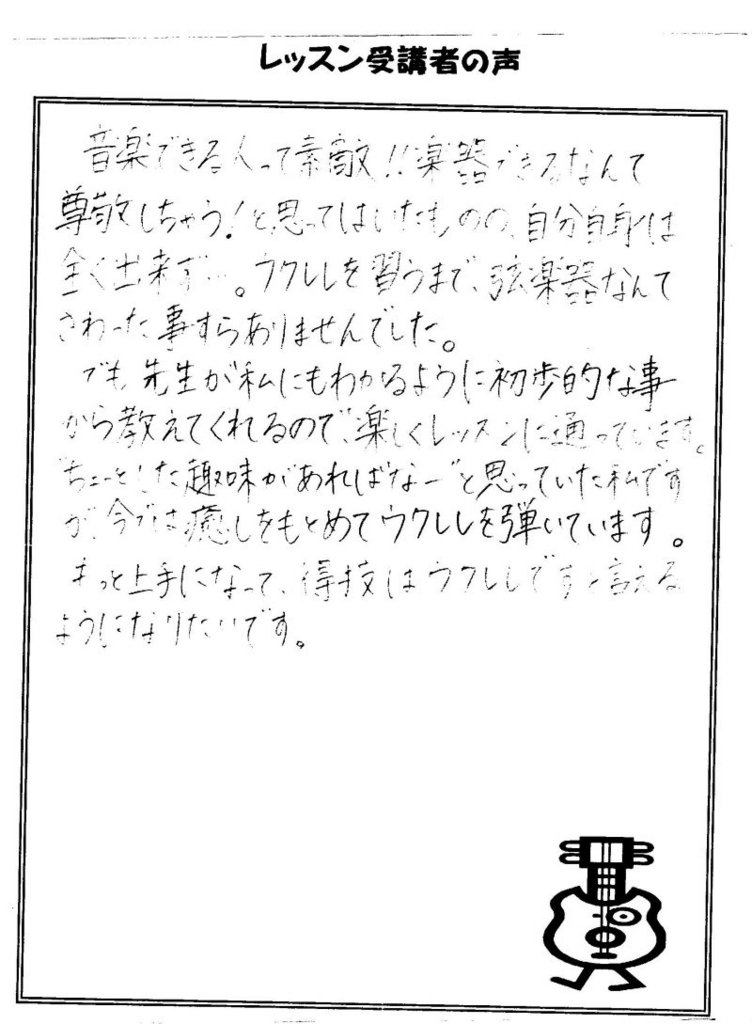 レッスン受講者の声
音楽できる人って素敵!!楽器できるなんて
尊敬しちゃう!と思ってはいたものの、自分自身は
全く出来ず…。ウクレレを習うまで、弦楽器なんて
さわった事すらありませんでした。
でも先生が私にもわかるように初歩的な事
から教えてくれるので、楽しくレッスンに通っています。
"ちょっとした趣味があればなー"と思っていた私です
が、今では癒しをもとめてウクレレを弾いています。
もっと上手になって、得技はウクレレですと言える
ようになりたいです。